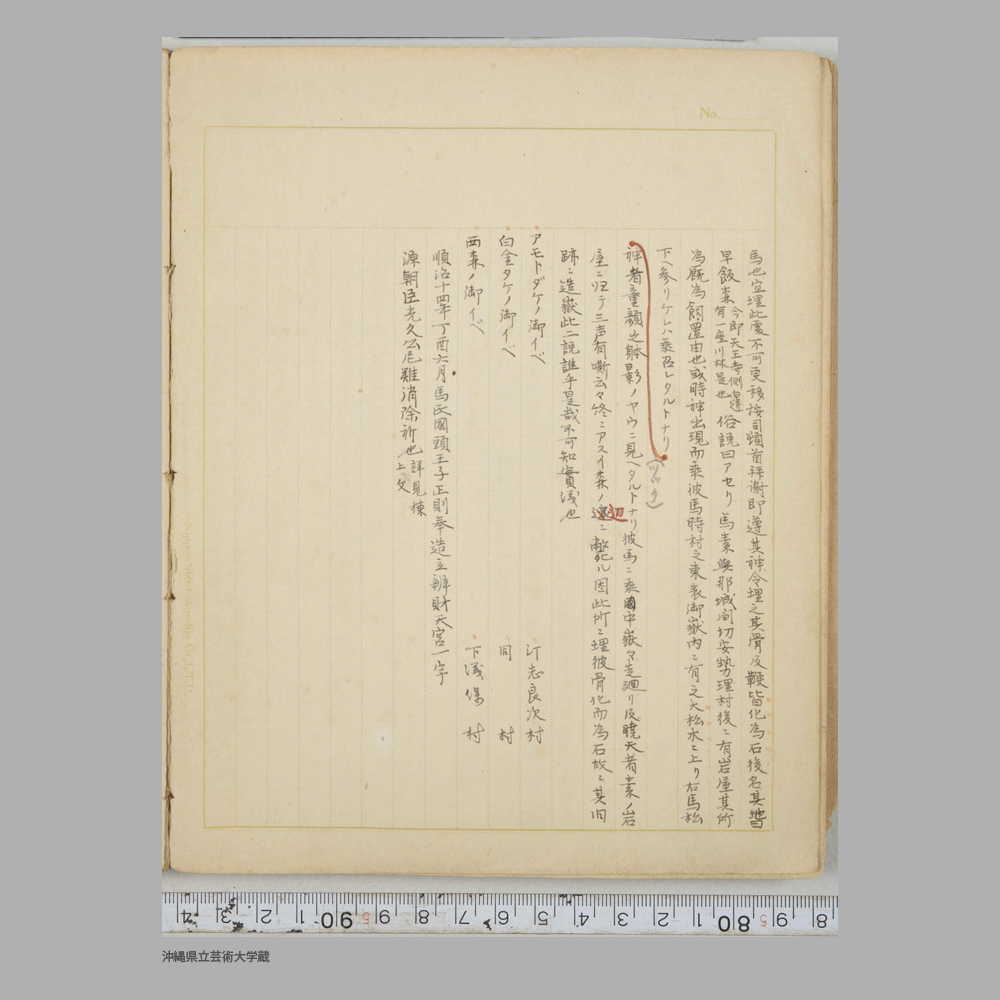 No.
馬也宜埋此處不可更移按司頓首拝謝即遵其神令埋之其骨及鞭皆化為石後名其地曰
早飯森 今即天王寺側邊有一座川林是也 俗説曰アセリ馬素與那城間切安勢理村後ニ有岩屋其所
為厩為飼置由也或時神出現而乘彼馬時村之東表御嶽内ニ有之大松木ニ上リ右馬松
下ヘ参リケレハ乘召レタルトナリ
神者童顔之躰影ノヤウニ見ヘタルトナリ彼馬ニ乘國中嶽々走廻リ及曉天者素ノ岩
屋ニ归テ三声有嘶云々终ニアスイ森ノ邊ニ斃ル因此所ニ埋彼骨化而為石故ニ其旧
跡ニ造嶽此二説誰乎是哉不可知實淺也
アモトダケノ御イベ 汀志良次村
白金タケノ御イベ 同 村
西森ノ御イベ 下儀保村
順治十四年丁酉六月馬氏國頭王子正則奉造立辨財天宮一宇
源朝臣光久公厄難消除祈也 詳見棟上文
4 3 2 1 90 9 8 7 6 5 4 3 2 1 80 9 8
沖縄県立芸術大学蔵